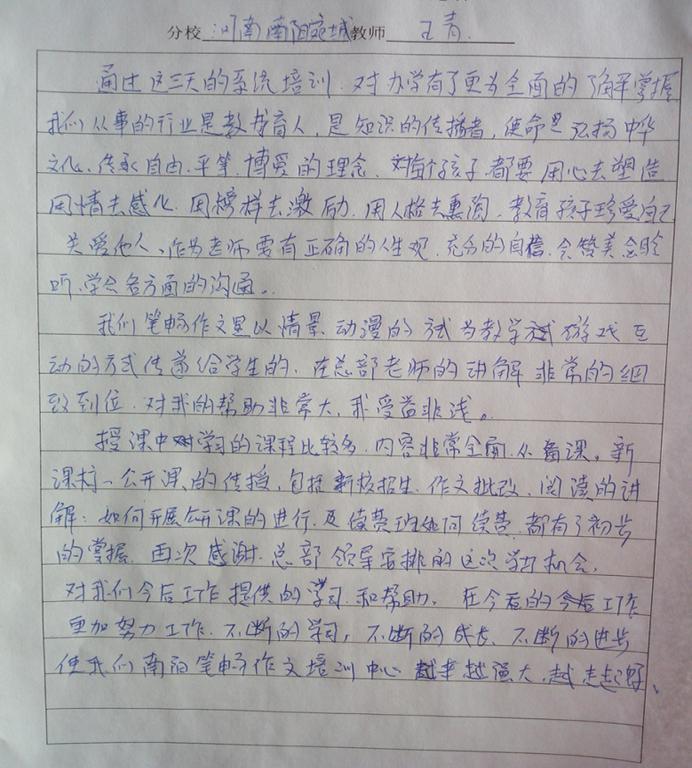 分校:河南南阳宛城教师 王青.
通过这三天的系统培训.对办学有了更为全面的了解掌握
我们从事的行业是教书育人,是知识的传播者,使命是弘扬中华
文化、传承自由.平等.博爱的理念.对每个孩子都要用心去塑造
用情去感化.用榜样去激励.用人格去熏陶.教育孩子珍爱自己
关爱他人、作为老师要有正确的人生观.充分的自信.会赞美会聆
听.学会各方面的沟通。
我们笔畅作文是以情景动漫的 教学 游戏互
动的方式传递给学生的.在总部老师的讲解非常的细
致到位.对我的帮助非常大,我受益非浅。
授课中 学习的课程比较多.内容非常全面.从备课,新
课 公开课的传授,包括新校招生.作文批改.阅读的讲
解:如何开展公开课的进行.及续费班如何续费.都有了初步
的掌握.再次感谢.总部领导安排的这次学习机会,
对我们今后工作提供的学习和帮助.在今后的今后工作
更加努力工作.不断的学习,不断的成长.不断的进步
使我们南阳笔畅作文培训中心越来越强大.越走越好、